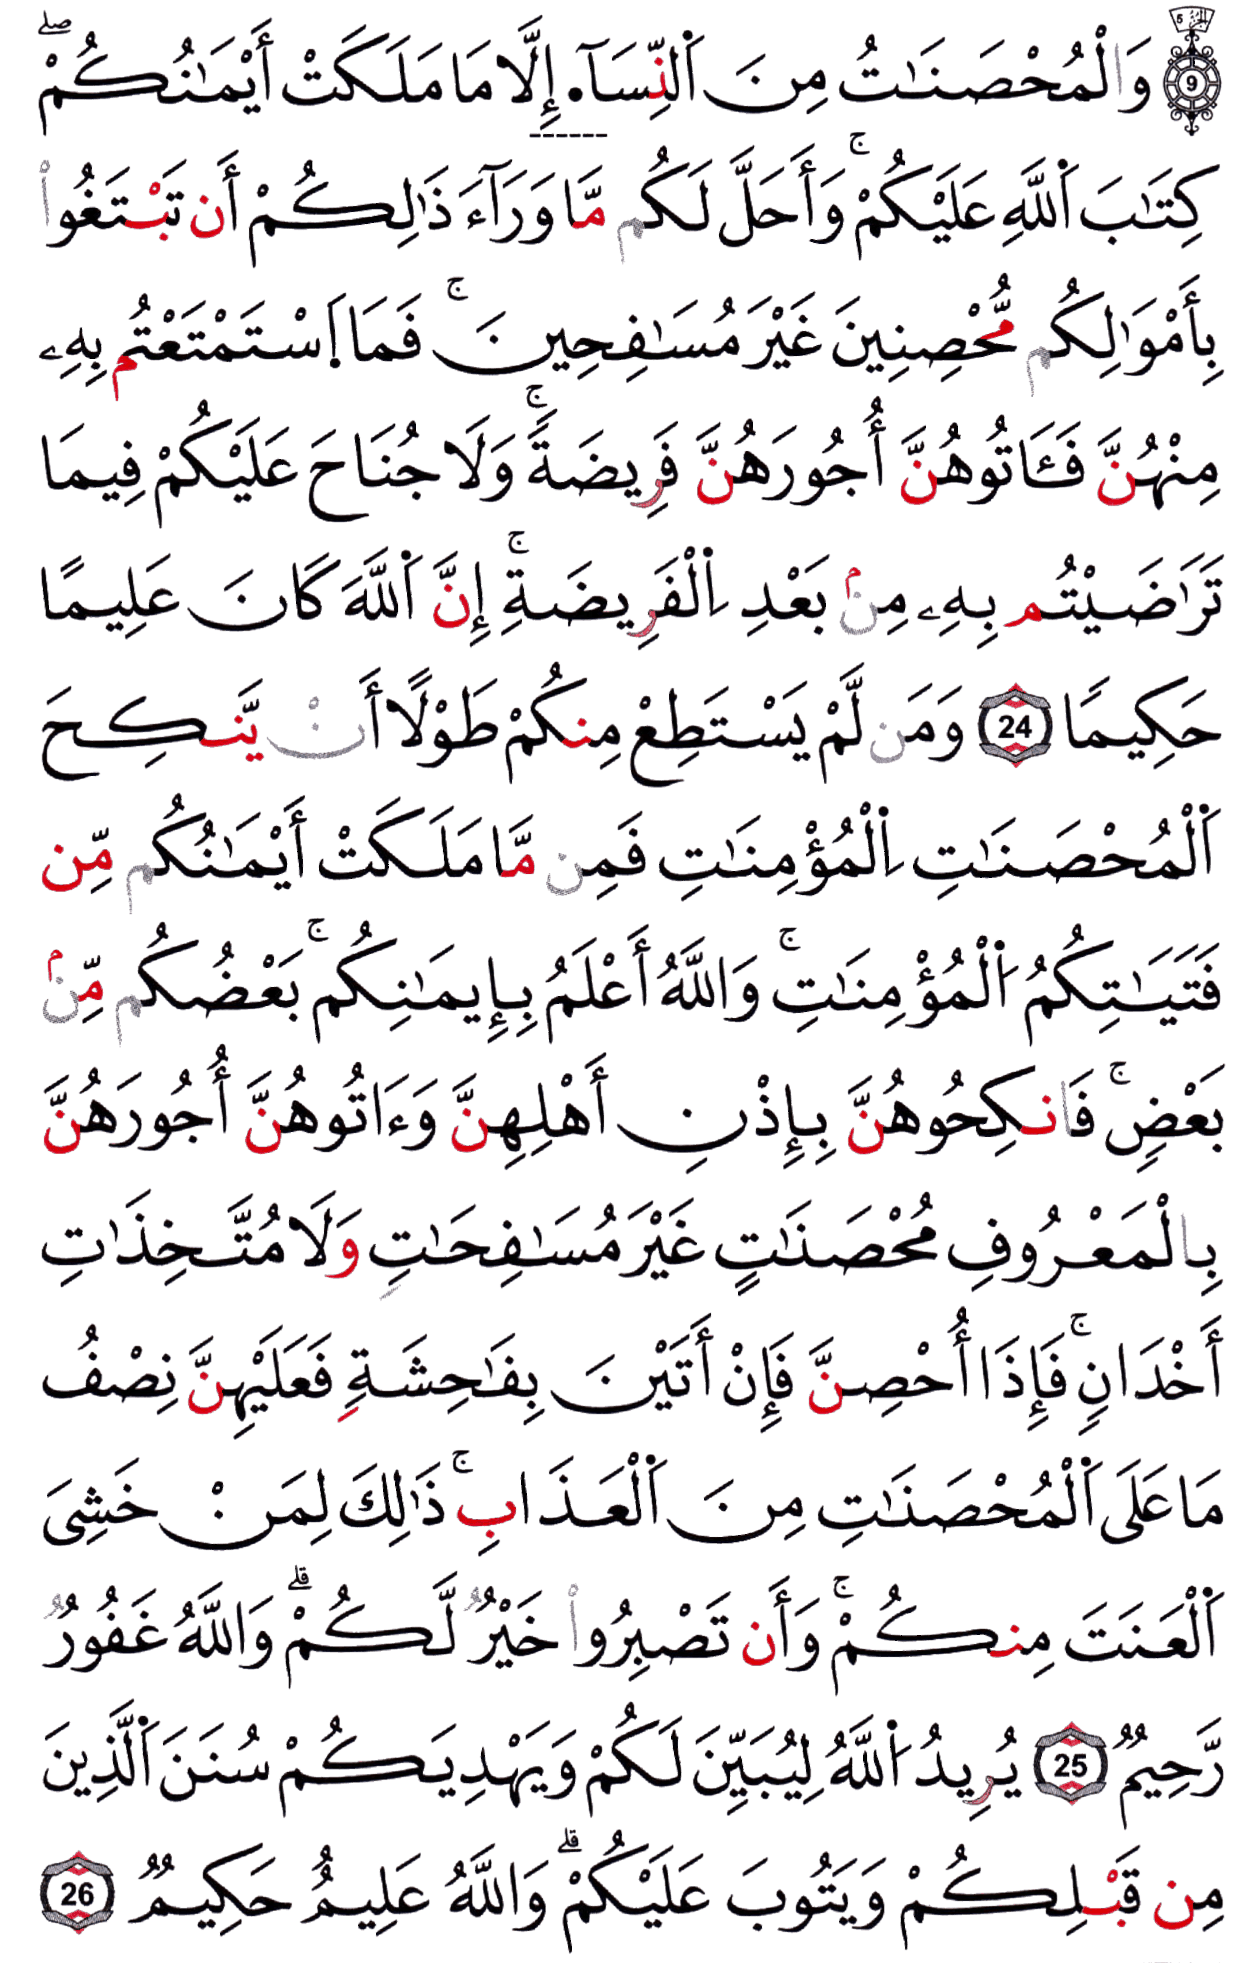 وَالْمُحْصَنَٰتُ مِنَ اَ۬لنِّسَآءِ اِ۪لَّا مَا مَلَكَتْ أَيْمَٰنُكُمْۖ
كِتَٰبَ اَ۬للَّهِ عَلَيْكُمْۚ وَأَحَلَّ لَكُم مَّا وَرَآءَ ذَٰلِكُمْ أَن تَبْتَغُواْ
بِأَمْوَٰلِكُم مُّحْصِنِينَ غَيْرَ مُسَٰفِحِينَۚ فَمَا اَ۪سْتَمْتَعْتُم بِهِۦ
مِنْهُنَّ فَـَٔاتُوهُنَّ أُجُورَهُنَّ فَرِيضَةًۚ وَلَا جُنَاحَ عَلَيْكُمْ فِيمَا
تَرَٰضَيْتُم بِهِۦ مِنۢ بَعْدِ اِ۬لْفَرِيضَةِۚ إِنَّ اَ۬للَّهَ كَانَ عَلِيمًا
حَكِيمًا 24 وَمَن لَّمْ يَسْتَطِعْ مِنكُمْ طَوْلًا أَنْ يَّنكِحَ
اَ۬لْمُحْصَنَٰتِ اِ۬لْمُؤْمِنَٰتِ فَمِن مَّا مَلَكَتْ أَيْمَٰنُكُم مِّن
فَتَيَٰتِكُمُ اُ۬لْمُؤْمِنَٰتِۚ وَاللَّهُ أَعْلَمُ بِإِيمَٰنِكُمۚ بَعْضُكُم مِّنۢ
بَعْضٍۚ فَانكِحُوهُنَّ بِإِذْنِ أَهْلِهِنَّ وَءَاتُوهُنَّ أُجُورَهُنَّ
بِالْمَعْرُوفِ مُحْصَنَٰتٍ غَيْرَ مُسَٰفِحَٰتٍ وَلَا مُتَّخِذَٰتِ
أَخْدَانٍۚ فَإِذَا أُحْصِنَّ فَإِنْ أَتَيْنَ بِفَٰحِشَةٍ فَعَلَيْهِنَّ نِصْفُ
مَا عَلَى اَ۬لْمُحْصَنَٰتِ مِنَ اَ۬لْعَذَابِۚ ذَٰلِكَ لِمَنْ خَشِيَ
اَ۬لْعَنَتَ مِنكُمْۚ وَأَن تَصْبِرُواْ خَيْرٌ لَّكُمْۗ وَاللَّهُ غَفُورٌ
رَّحِيمٌ 25 يُرِيدُ اُ۬للَّهُ لِيُبَيِّنَ لَكُمْ وَيَهْدِيَكُمْ سُنَنَ اَ۬لَّذِينَ
مِن قَبْلِكُمْ وَيَتُوبَ عَلَيْكُمْۗ وَاللَّهُ عَلِيمٌ حَكِيمٌ 26